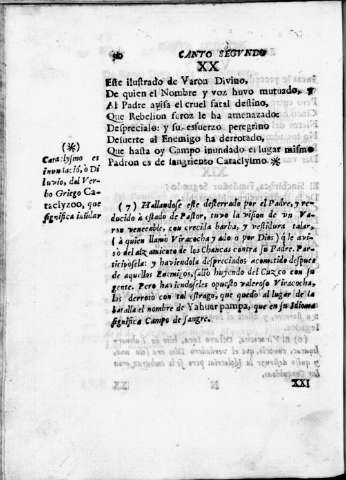 CANTO SEGVNDO
XX
Este ilustrado de Varon Divino,
De quien el Nombre y voz huvo mutuado,
Al Padre avisa el cruel fatal destino,
Que Rebelion feroz le ha amenazado:
Desprecialo: y su esfuerzo peregrino
Desuerte al Enemigo ha derrotado,
Que hasta oy Campo inundado el lugar mismo
Padron es de sangriento Cataclysmo. ✻
(✻)
Cataclysmo es
inundació, ò Di
luvio, del Ver-
bo Griego Ca-
taclyzoo, que
significa inūdar
(7) Hallandose este desterrado por el Padre, y re-
ducido à estado de Pastor, tuvo la vision de un Va-
ron venerable, con crecida barba, y vestidura talar,
( à quien llamo Viracocha y adoró por Dios) q̃ le avi-
só del alzamiento de los Chancas contra su Padre. Par-
ticipósela: y haviendola despreciado acometido despues
de aquellos Enemigos, salió huyendo del Cuzco con su
gente. Pero haviendoles opuesto valeroso Viracocha,
los derrotò con tal estrago, que quedó al lugar de la
batalla el nombre de Yahuarpampa, que en su Idioma
significa Campo de sangre.
XXI